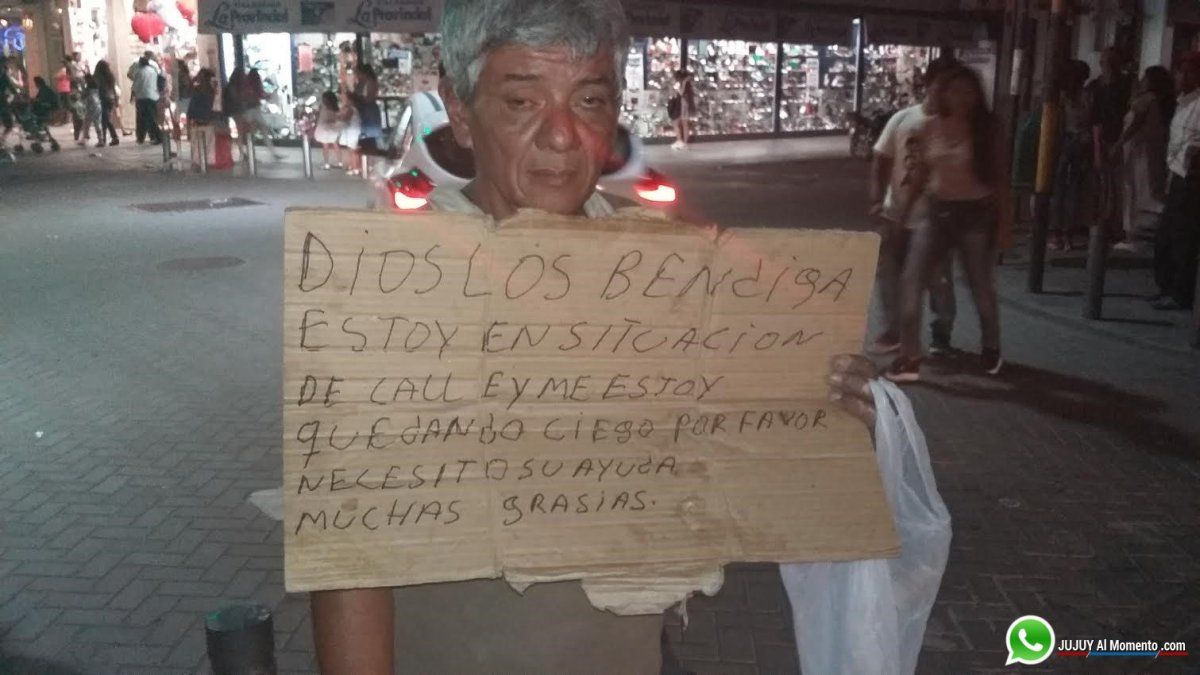 La Provincial
La Provincial
DIOS LOS BENdigA
ESTOY EN SITUACION
DE CALL E Y ME ESTOY
qUEdANDO CIEgO POR FAVOR
NECESITO SU AYUdA
MUCHAS gRASIAS.
JUJUY Al Momento .com